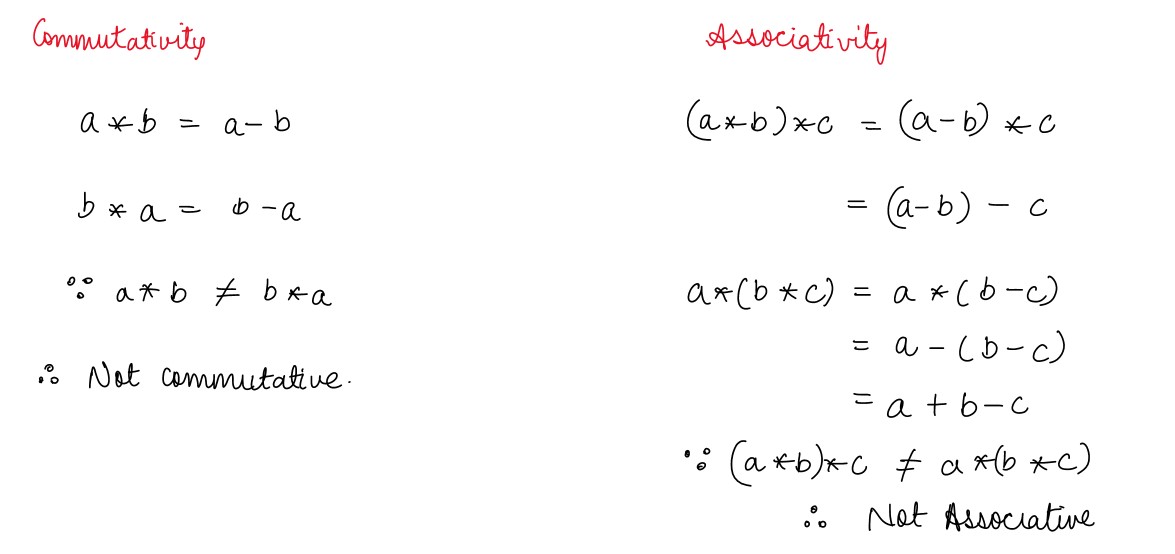 Commutativity
a * b = a - b
b * a = b - a
∵ a * b ≠ b * a
∴ Not commutative.
Associativity
(a * b) * c = (a - b) * c
= (a - b) - c
a * (b * c) = a * (b - c)
= a - (b - c)
= a + b - c
∵ (a * b) * c ≠ a * (b * c)
∴ Not Associative